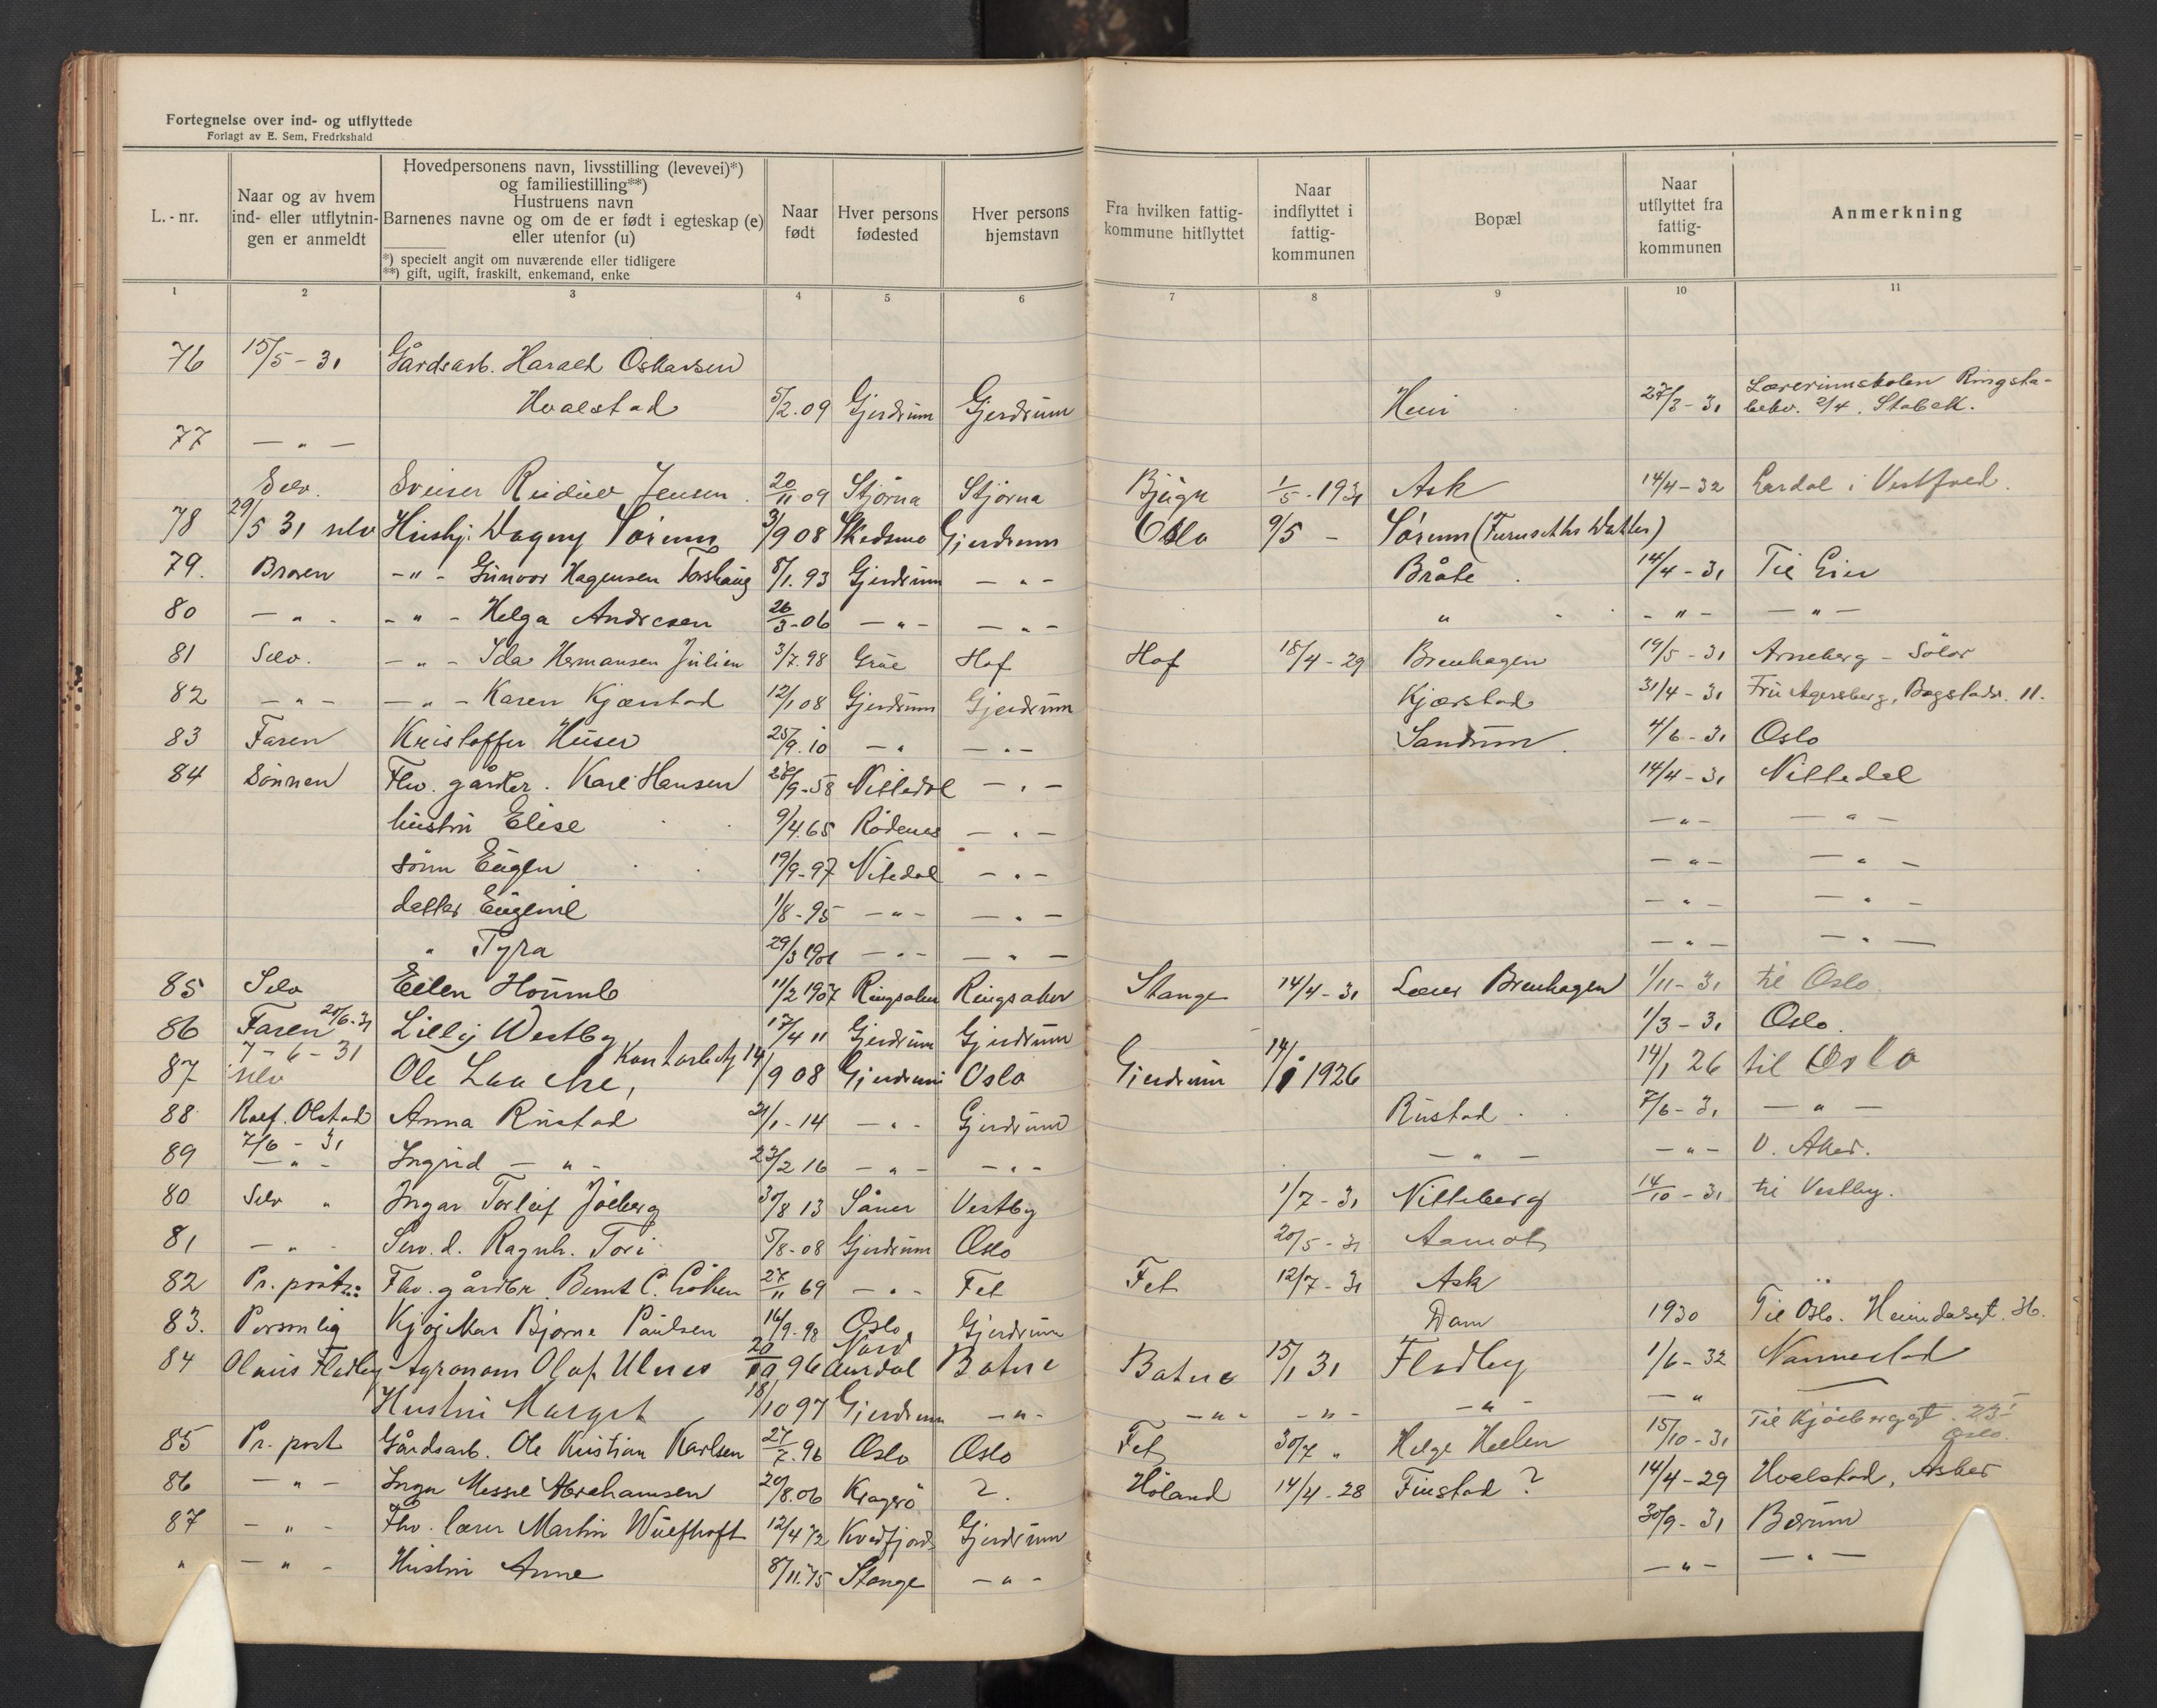 Fortegnelse over ind- og utflyttede
Forlagt av E. Sem, Fredrkshald
L.-nr.
Naar og av hvem ind- eller utflytnin- gen er anmeldt
Hovedpersonens navn, livsstilling (levevei)*)
og familiestilling**)
Hustruens navn
Barnenes navne og om de er født i egteskap (e)
eller utenfor (u)
*) specielt angit om nuværende eller tidligere
**) gift, ugift, fraskilt, enkemand, enke
Naar født
Hver persons fødested
Hver persons hjemstavn
Fra hvilken fattig- kommune hitflyttet
Naar indflyttet i fattig- kommunen
Bopæl
Naar utflyttet fra fattig- kommunen
Anmerkning
1 2 3 4 5 6 7 8 9 10 11
76 15/5-31 Gårdsarb. Harald Oskarsen
Hvalstad 5/2.09 Gjerdrum Gjerdrum 27/3-31 Lærerinneskolen Ringsta-
bekv. 2/4. Stabekk.
77 - " -
Selv. Sveiser Reidar Jensen 20/11 09 Stjørna Stjørna Bjugn 1/5-1931 Ask 14/4-32 Lardal i Vestfold.
78 29/5 31 selv Hushj. Dagny Sørum 3/9 08 Skedsmo Gjerdrum Oslo 9/5 - Sørum (Furuseths Datter)
79. Broren - " - Gunvor Hagensen Torshaug 5/1.93 Gjerdrum - " - Bråte 14/4-31 Til
80 - " - - " - Helga Andresen 26/3-06 - " - - " - " - " - - " -
81 Selv. - " - Ida Hermansen Julien 3/7.98 Grue Hof Hof 18/4-29 Brenhagen 19/5-31 Arneberg - Solør
82 - " - - " - Karen Kjærstad 12/1 08 Gjerdrum Gjerdrum Kjærstad 31/4-31 Fru Agersberg, Bogstadv. 11.
83 Faren Kristoffer Huser 25/9.10 - " - " - Sandum 4/6-31 Oslo
84 Sönnen Fhv. gårdbr. Karl Hansen 28/9-58 Nittedal - " - 14/4-31 Nittedal
hustru Elise 9/4.65 Rödenes - " - - " - - " -
sönn Eugen 19/9-97 Nitedal - " - - " - - " -
datter Eugenie 1/8-95 - " - - " - - " - - " -
" Tyra 29/3 1901 - " - - " - - " - - " -
85 Selv Eilen Houmb 11/2 1907 Ringsaker Ringsaker Stange 14/4-31 Lærer Brenhagen 1/11-31 til Oslo.
86 Faren 20/6-31 Lilly Westby 17/4 11 Gjerdrum Gjerdrum 1/3-31 Oslo.
7-6-31
87 selv Ole Laache, Kontorbetj 14/9 08 Gjerdrum Oslo Gjerdrum 14/1 1926 14/1 26 til Oslo
88 Ralf. Olstad Anna Rustad 21/1-14 - " - Gjerdrum Rustad 7/6-31 - " -
7/6-31
89 - " - Ingrid - " - 23/2 16 - " - - " - - " - - " - V. Aker.
80 Selv " Ingar Torleif Jölberg 30/8 13 Såner Vestby 1/7-31 Nitteberg 14/10-31 til Vestby.
81 - " - Serv. d. Ragnh. Tori 5/8-08 Gjerdrum Oslo 20/5-31 Aamot
82 Pr. post: Fhv. gårdbr. Bernt C. Löken 27/11 69 - " - Fet Fet 12/7-31 Ask
83. Personlig Bjarne Paulsen 16/9-98 Oslo Gjerdrum Dam 1930 Til Oslo. Heimdalsgt. 36.
84 Olaus Fladby Agronom Olaf Ulnes 20/10 96 Nord Aurdal Batne Batne 15/1 31 Fladby 1/6-32 Nannestad
Hustru Margit 18/10 97 Gjerdrum - " - - " - - " - - " - - "
85 Pr. post Gårdsarb. Ole Kristian Karlsen 27/7.96 Oslo Oslo Fet 30/7 " Helge Heelen 15/10-31 Til Kjölberggt. 23 Oslo.
86 - " - Inga Messel Abrahamsen 20/8.06 Kragerö ?. Höland 14/4-28 Finstad ? 14/4-29 Hvalstad, Asker
87 - " - Fhv. lærer Martin Wulfhoft 12/4 72 Kvedfjord Gjerdrum 30/9-31 Bærum
" - " - Hustru Anne 8/11.75 Stange - " - - " - - " -